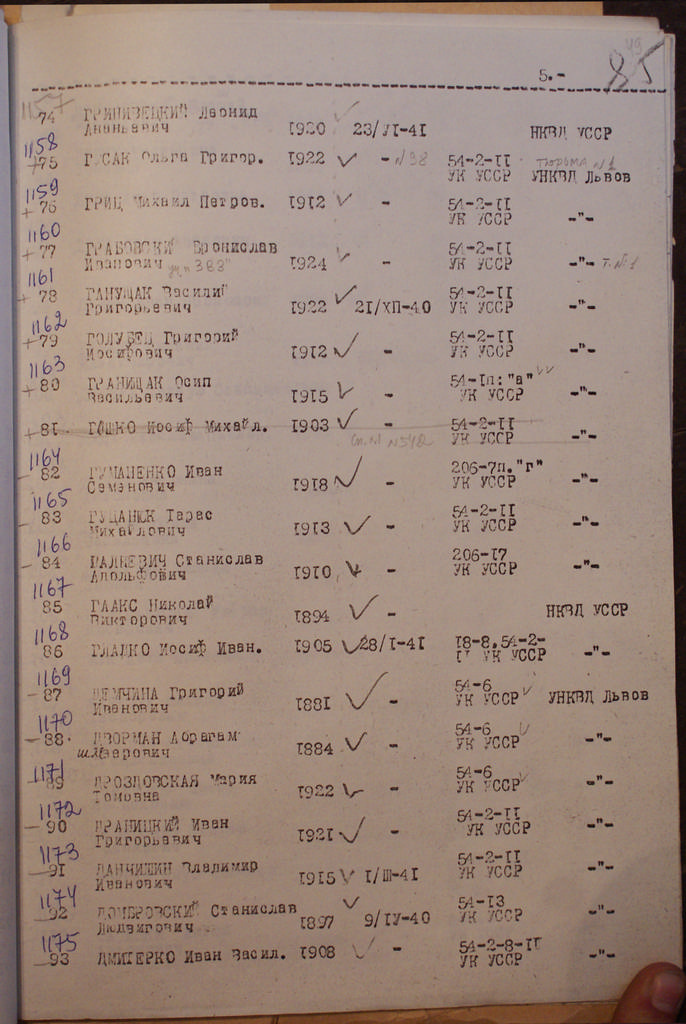 49
5.- 85
1157
74 ГРИНИВЕЦКИЙ Леонид
Ананьевич 1920 23/УІ-4І НКВД УССР
1158
+75 ГУСАК Ольга Григор. І922 - N 98 54-2-ІІ тюрьма №1
УК УССР УНКВД Львов
1159
+ 76 ГРИЦ Михаил Петров. І9І2 - 54-2-ІІ
УК УССР -"-
1160
+ 77 ГРАБОВСКИЙ Бронислав
Иванович "383" І924 - 54-2-ІІ
УК УССР -"- т.№1
1161
+ 78 ГАНУЩАК Василий
Григорьевич І922 2І/ХП-40 54-2-ІІ
УК УССР -"-
1162
+79 ГОЛУБЕЦ Григорий
Иосифович І9І2 - 54-2-ІІ
УК УССР -"-
1163
+ 80 ГРАНИЦАК Осип
Васильевич І9І5 - 54-Іп:"а"
УК УССР -"-
+ 8І. ГОШКО Иосиф Михайл. І903 - 54-2-ІІ
УК УССР -"-
1164
- 82 ГУМАНЕНКО Иван
Семенович І9І8 - 206-7п."г"
УК УССР -"-
1165
- 83 ГУЦАНЮК Тарас
Михайлович І9І3 - 54-2-ІІ
УК УССР -"-
1166
- 84 Станислав
Адольфович І9І0 - 206-І7
УК УССР -"-
1167
85 ГААКС Николай
Викторович І894 - НКВД УССР
1168
86 ГЛАДКО Иосиф Иван. І905 28/І-4І І8-8,54-2-
ІІ УК УССР -"-
1169
- 87 ДЕМЧИНА Григорий
Иванович І88І - 54-6
УК УССР УНКВД Львов
1170
- 88. ДВОРМАН Абрагам
І884 - 54-6
УК УССР -"-
1171
89 ДРОЗДОВСКАЯ Мария
Томовна І922 - 54-6
УК УССР -"-
1172
- 90 ДРАНИЦКИЙ Иван
Григорьевич І92І - 54-2-ІІ
УК УССР -"-
1173
9І ДАНЧИШИН Владимир
Иванович І9І5 І/Ш-4І 54-2-ІІ
УК УССР -"-
1174
92 ДОМБРОВСКИЙ Станислав
Людвигович І897 9/ІУ-40 54-І3
УК УССР -"-
1175
93 ДМИТЕРКО Иван Васил. І908 - 54-2-8-ІІ
УК УССР -"-